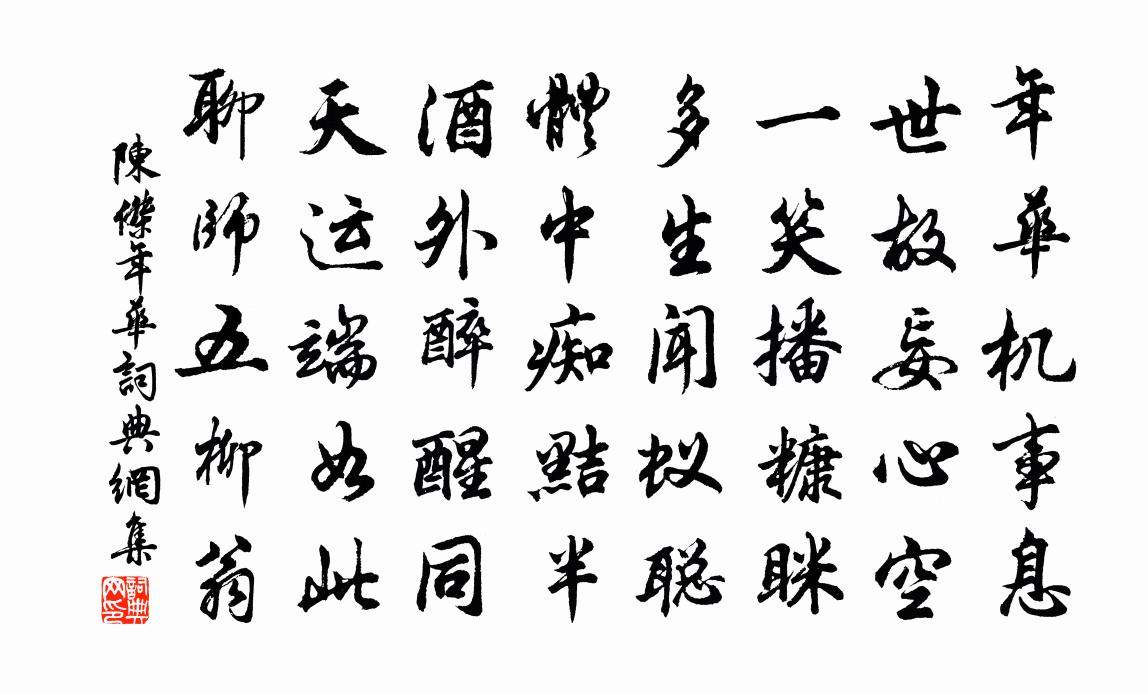 年華机事息
世故妄心空
一笑播糠眯
多生闻蚁聪
體中痴黠半
酒外醉醒同
天运端如此
聊师五柳翁
陳傑年華詞典網集
詞典网印